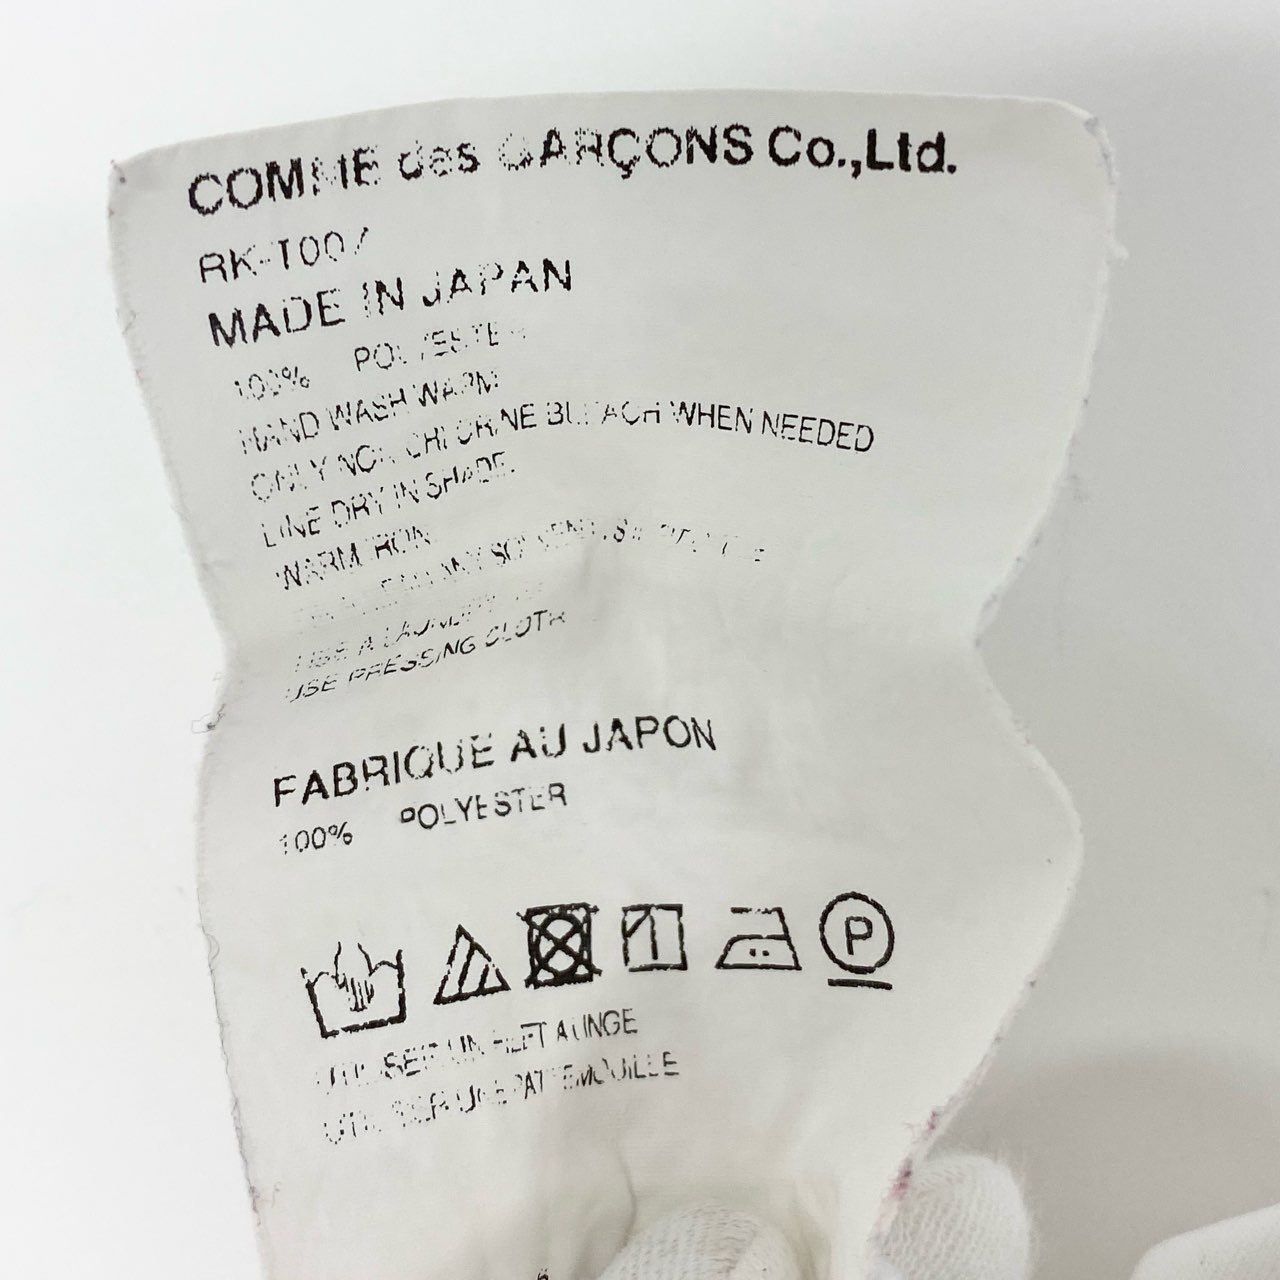 COMME des GARÇONS Co.,Ltd.
RK-T007
MADE IN JAPAN
100% POLYESTER
HAND WASH WARM
ONLY NON CHLORINE BLEACH WHEN NEEDED
LINE DRY IN SHADE.
WARM IRON.
ANY SOLVENT
USE A LAUNDRY
USE PRESSING CLOTH
FABRIQUE AU JAPON
100% POLYESTER
P
UTILISER UN FILET A LINGE
UTILISER UNE PATTEMOUILLE